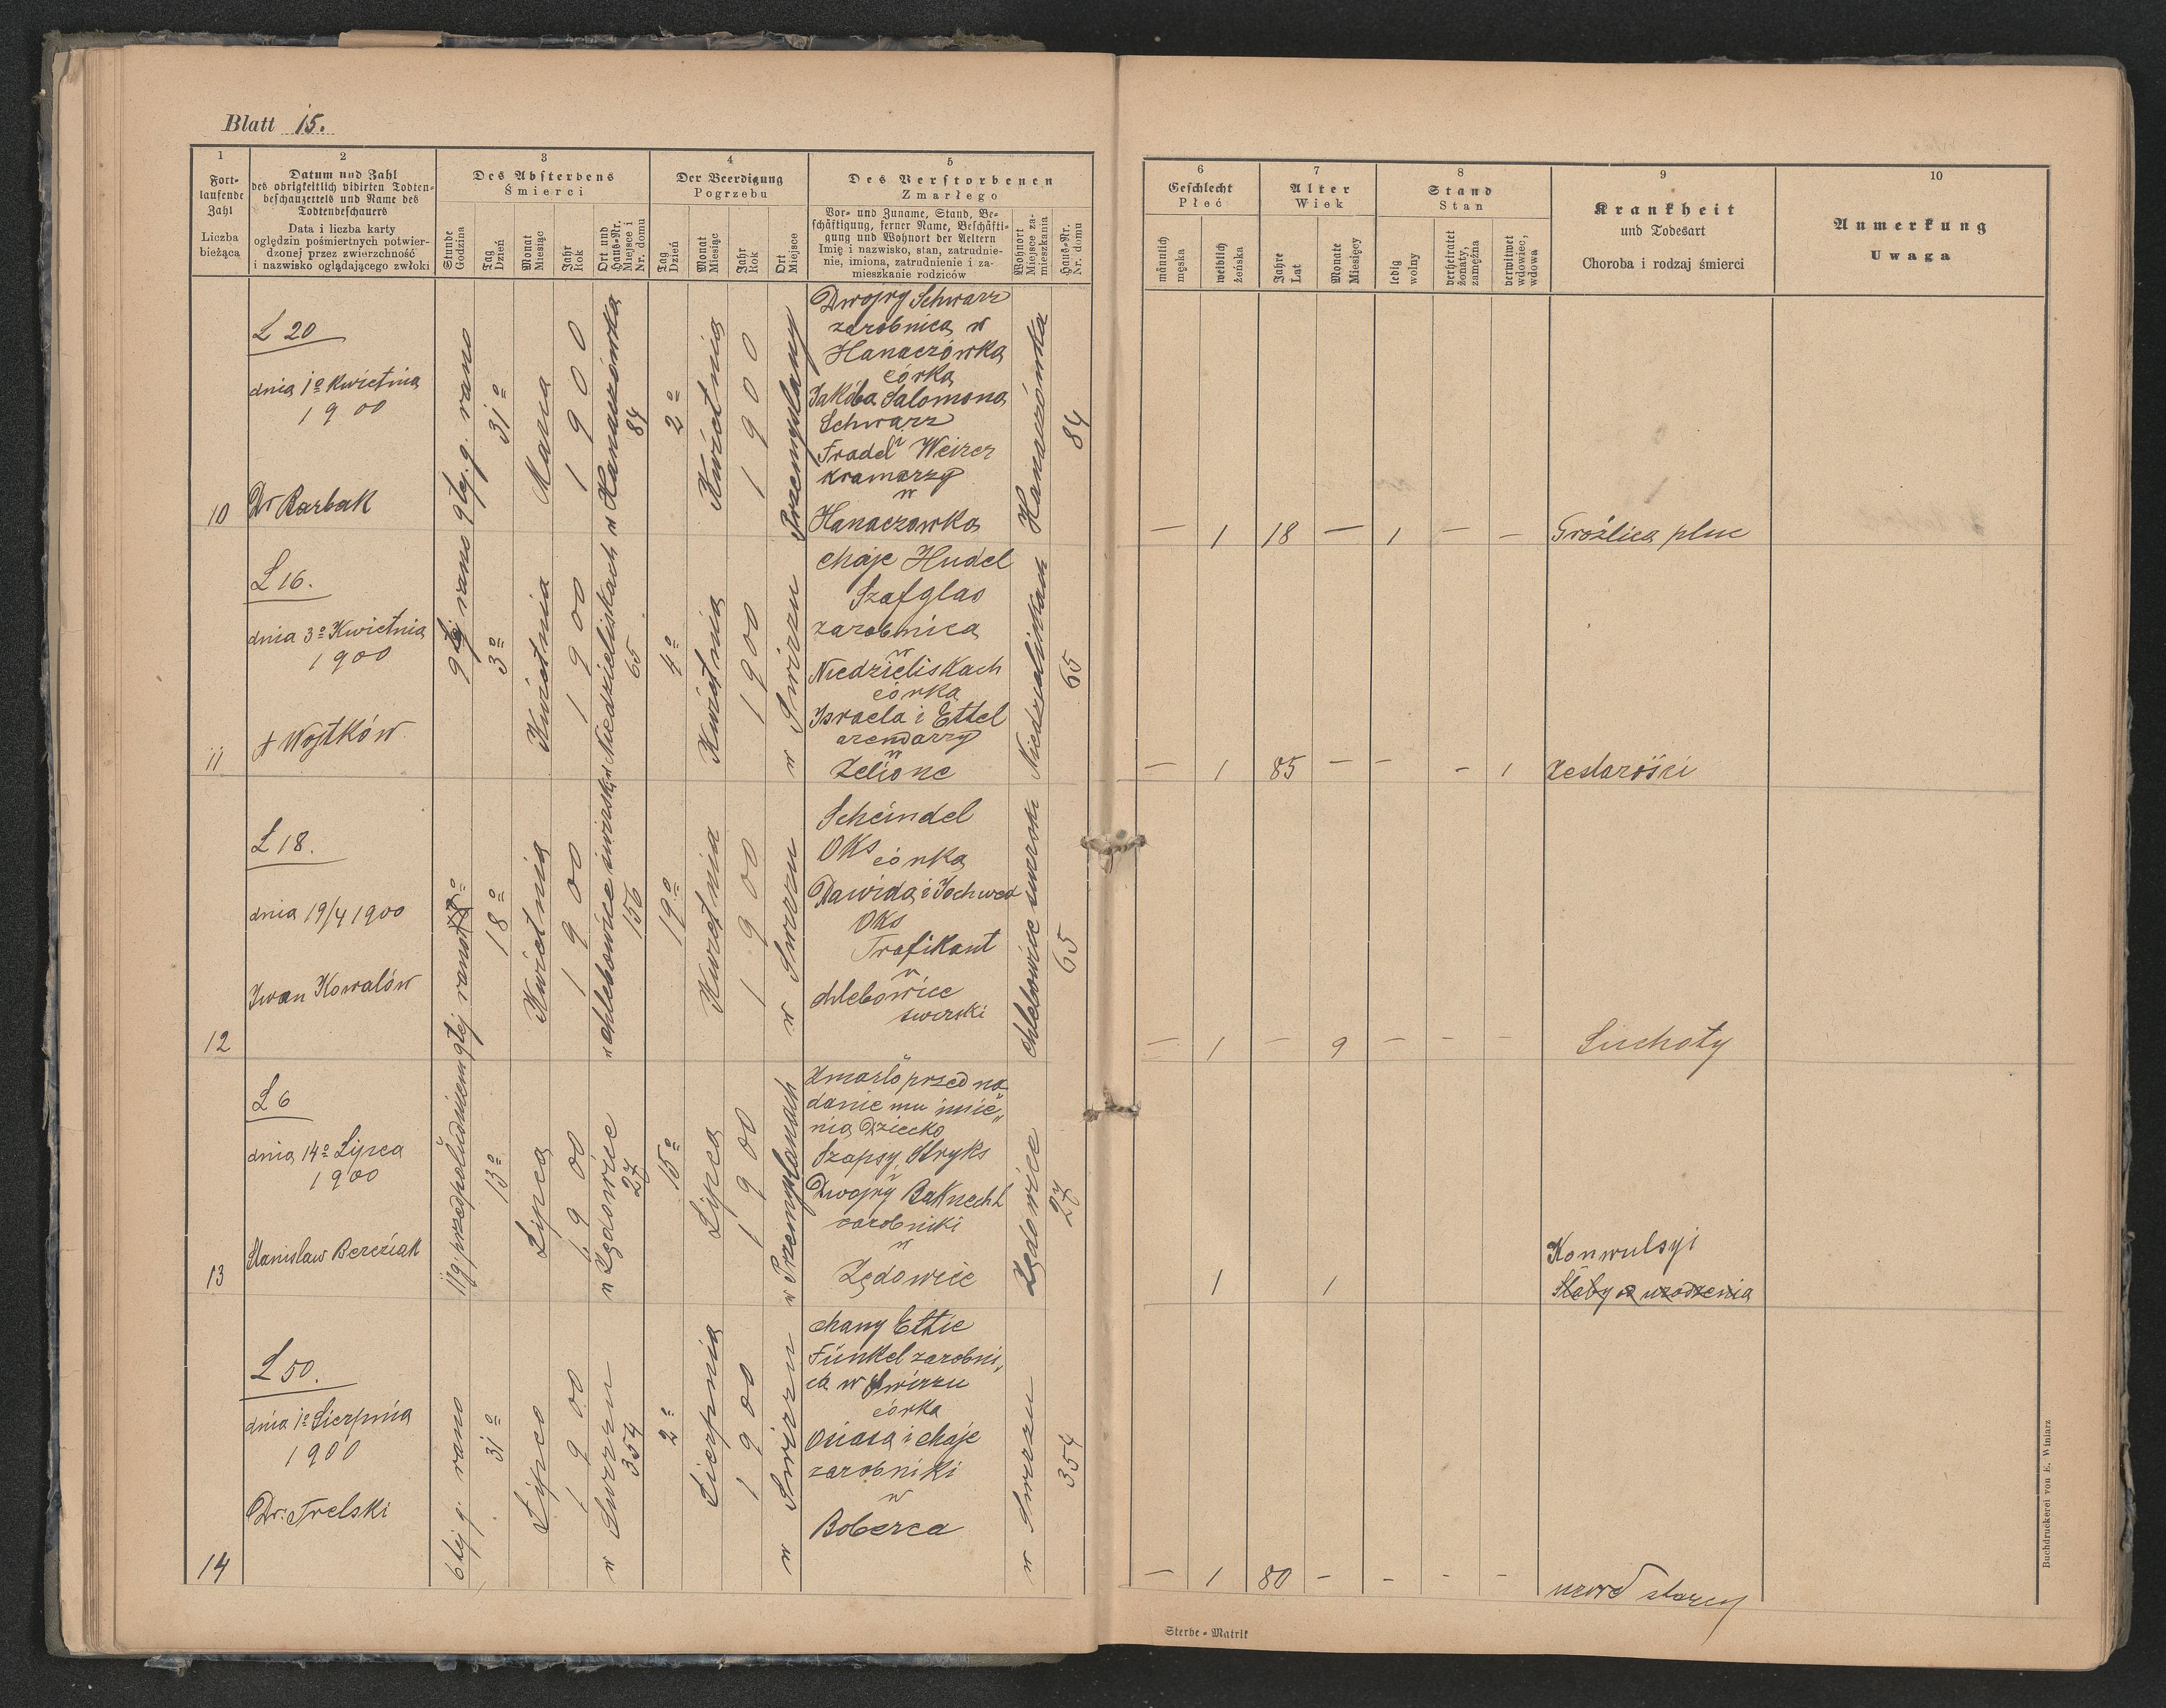 Blatt 15.
1
Fort-
laufende
Zahl
Liczba
bieżąca
2
Datum und Zahl
des obrigkeitlich vidirten Todten-
beschauzettels und Name des
Todtenbeschauers
Data i liczba karty
oględzin pośmiertnych potwier-
dzonej przez zwierzchność
i nazwisko oglądającego zwłoki
3
Des Absterbens
Śmierci
Stunde
Godzina
Tag
Dzień
Monat
Miesiąc
Jahr
Rok
Ort und
Haus-Nr.
Miejsce i
Nr. domu
4
Der Beerdigung
Pogrzebu
Tag
Dzień
Monat
Miesiąc
Jahr
Rok
Ort
Miejsce
5
Des Verstorbenen
Zmarłego
Vor- und Zuname, Stand, Be-
schäftigung, ferner Name, Beschäfti-
gung und Wohnort der Aeltern
Imię i nazwisko, stan, zatrudnie-
nie, imiona, zatrudnienie i za-
mieszkanie rodziców
Wohnort
Miejsce za-
mieszkania
Haus-Nr.
Nr. domu
6
Geschlecht
Płeć
männlich
męska
weiblich
żeńska
7
Alter
Wiek
Jahre
Lat
Monate
Miesięcy
8
Stand
Stan
ledig
wolny
verheiratet
żonaty,
zamężna
verwitwet
wdowiec,
wdowa
9
Krankheit
und Todesart
Choroba i rodzaj śmierci
10
Anmerkung
Uwaga
10
L 20
dnia 1o Kwietnia
1900
Dr Barbak
9tej. g. rano
31o
Marca
1900
w Hanaczówka
84
2o
Kwietnia
1900
Przemyslany
Dwojry Schwarz
zarobnica w
Hanaczówka
córka
Jakóba Salomona
Schwarz
Fradel Weizer
kramarzy
w
Hanaczowka
Hanaczówka
84
— 1 18 — 1 — —
Gróźlica pluc
11
L 16.
dnia 3o Kwietnia
1900
Wojtków
9tej rano
3o
Kwietnia
1900
w Niedzieliskach
65
4o
Kwietnia
1900
w Swirzu
Chaje Hudel
Szafglas
zarobnica
w
Niedzieliskach
córka
Israela i Ettel
arendarzy
w
Zelione
Niedzieliskach
65
— 1 85 — — - 1
Zestarości
12
L 18.
dnia 19/4 1900
Iwan Kowalów
9tej rano
18o
Kwietnia
1900
w Chlebowice swirski
156
19o
Kwietnia
1900
w Swirzu
Scheindel
Oks córka
Dawida i Jochwed
Oks
Trafikant
w
Chlebowice
swirski
Chlebowice swirski
65
— 1 — 9 — — —
Suchoty
13
L 6
dnia 14o Lipca
1900
Stanislaw Bereziak
11g. przedpoludniem
13o
Lipca
1900
w Zędowice
27
15o
Lipca
1900
w Przemyslanach
Zmarlo przed na
danie mu imie„
nia Dziecko
Szapsy Stryks
Dwojry Baknecht
zarobniki
w
Zędowice
Zędowice
27
1 1
Konwulsyi
Słaby od urodzenia
14
L 50.
dnia 1o Sierpnia
1900
Dr. Trelski
6tej g. rano
31o
Lipca
1900
w Swirzu
354
2o
Sierpnia
1900
w Swirzu
Chany Ettie
Fünkel zarobni„
ca w Swirzu
córka
Osiasa i Chaje
zarobniki
w
Boberca
w Swirzu
354
— 1 80 - - - -
uwiąd starczy
Sterbe-Matrik
Buchdruckerei von E. Winiarz